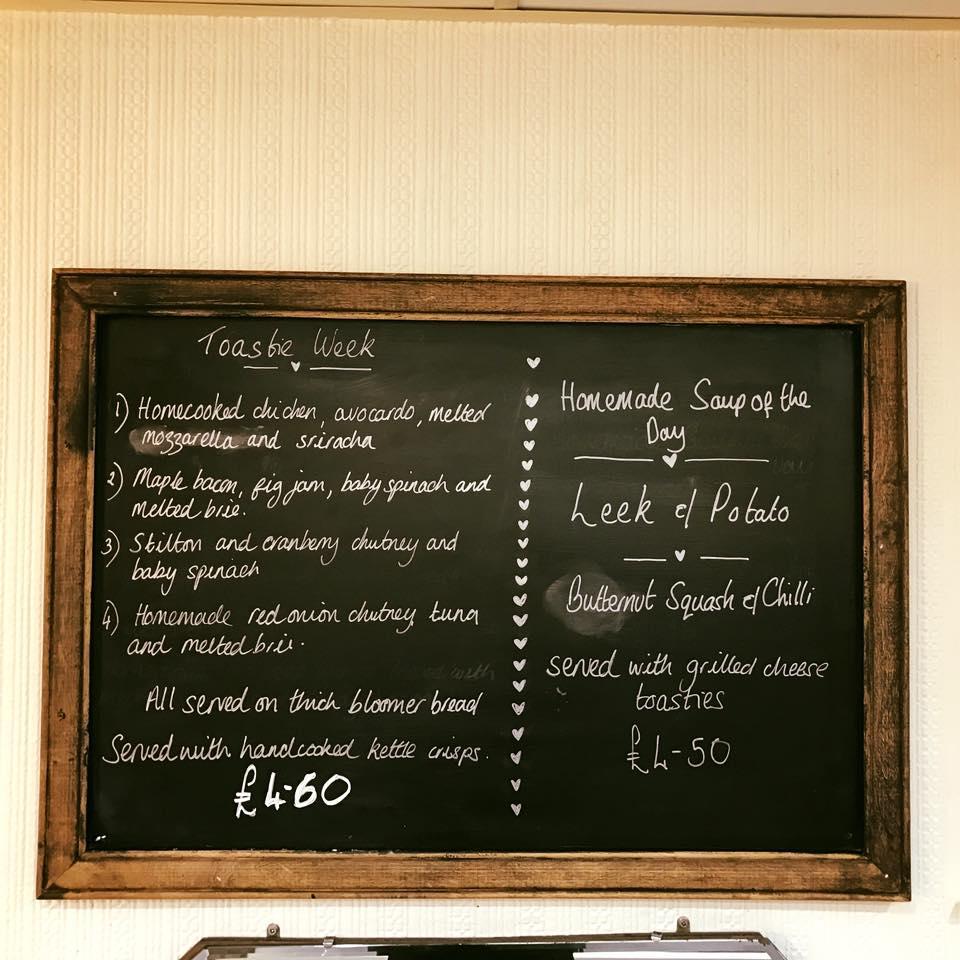 Toastie Week
1) Homecooked chicken, avocardo, melted
mozzarella and sriracha
2) Maple bacon, fig jam, baby spinach and
melted brie.
3) Stilton and cranberry chutney and
baby spinach
4) Homemade red onion chutney tuna
and melted brie.
All served on thick bloomer bread
Served with handcooked kettle crisps.
£4-60
Homemade Soup of the
Day
Leek & Potato
Butternut Squash & Chilli
served with grilled cheese
toasties
£4-50